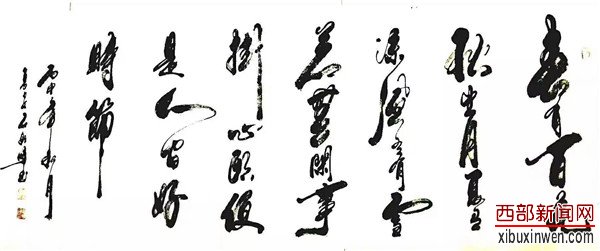 春有百花
秋有月夏有
涼風冬有雪
若無閑事
掛心頭便
是人間好
時節
丙申年秋月
西部新闻网
xibuxinwen.com